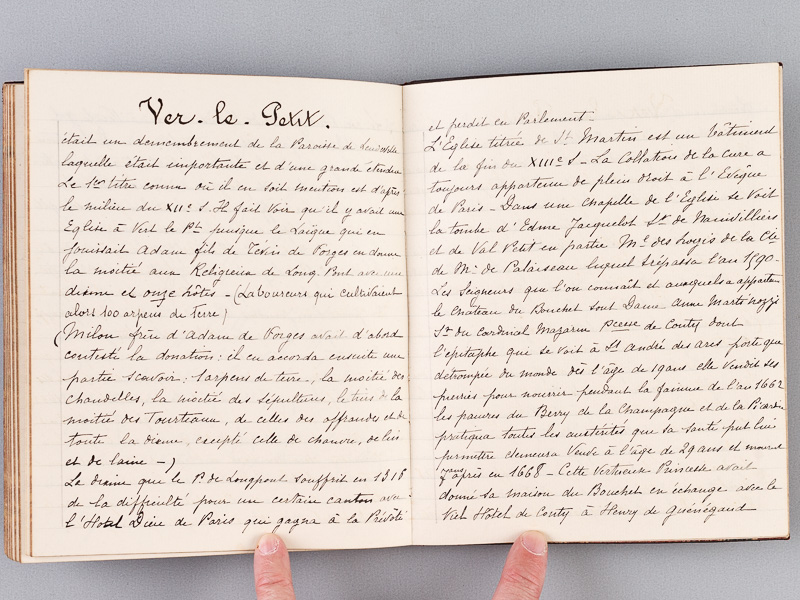 Ver-le-Petit.
était un démembrement de la Paroisse de
laquelle était importante et d'une grande étendue
Le 1er titre connu où il en soit mention est d'après
le milieu du XIIe S. Il fait voir qu'il y avait une
Eglise à Vert le Pt puisque le Laïque qui en
jouissait Adam fils de Tévin de Forges en donna
la moitié aux Religieux de Long. Pont avec une
dixme et onze hôtes - (Laboureurs qui cultivaient
alors 100 arpens de terre)
(Milon frère d'Adam de Forges avait d'abord
contesté la donation: il en accorda ensuite une
partie scavoir: 1 arpens de terre, la moitié des
chandelles, la moitié des sépultures, le tiers de la
moitié des Tourteaux, de celles des offrandes et de
toute la dixme, excepté celle de chanvre, de lin
et de laine -)
La dixme que le P. de Longpont souffrit en 1316
de la difficulté pour un certain canton avec
l'Hotel Dieu de Paris qui gagna à la Prévôté
et perdit en Parlement -
L'Eglise titrée de St Martin est un bâtiment
de la fin du XIIIe S - La Collation de la cure a
toujours appartenue de plein droit à l'Evêque
de Paris - Dans une chapelle de l'Eglise se voit
la tombe d'Edme Jacquelot Sr de Mainvilliers
et de Val Petit en partie Ml des logis de la Cie
de Mr de Palaiseau lequel trépassa l'an 1590 -
Les Seigneurs que l'on connait et auxquels a appartenu
le Chateau du Bouchet sont Dame Anne Martinozzi
du Cardinal Mazarin Pcesse de Conty dont
l'epitaphe qui se voit à St André des arcs porte que
détrompée du monde dès l'âge de 19 ans elle vendit ses
pierries pour nourrir pendant la famine de l'an 1662
les pauvres du Berry de la Champagne et de la Picardie
pratiqua toutes les austérités que sa santé put lui
permettre demeura Veuve à l'âge de 29 ans et mourut
7 ans après en 1668 - Cette Vertueuse Princesse avait
donné sa maison du Bouchet en échange avec le
Viel Hotel de Conty à Henry de Guénégaud